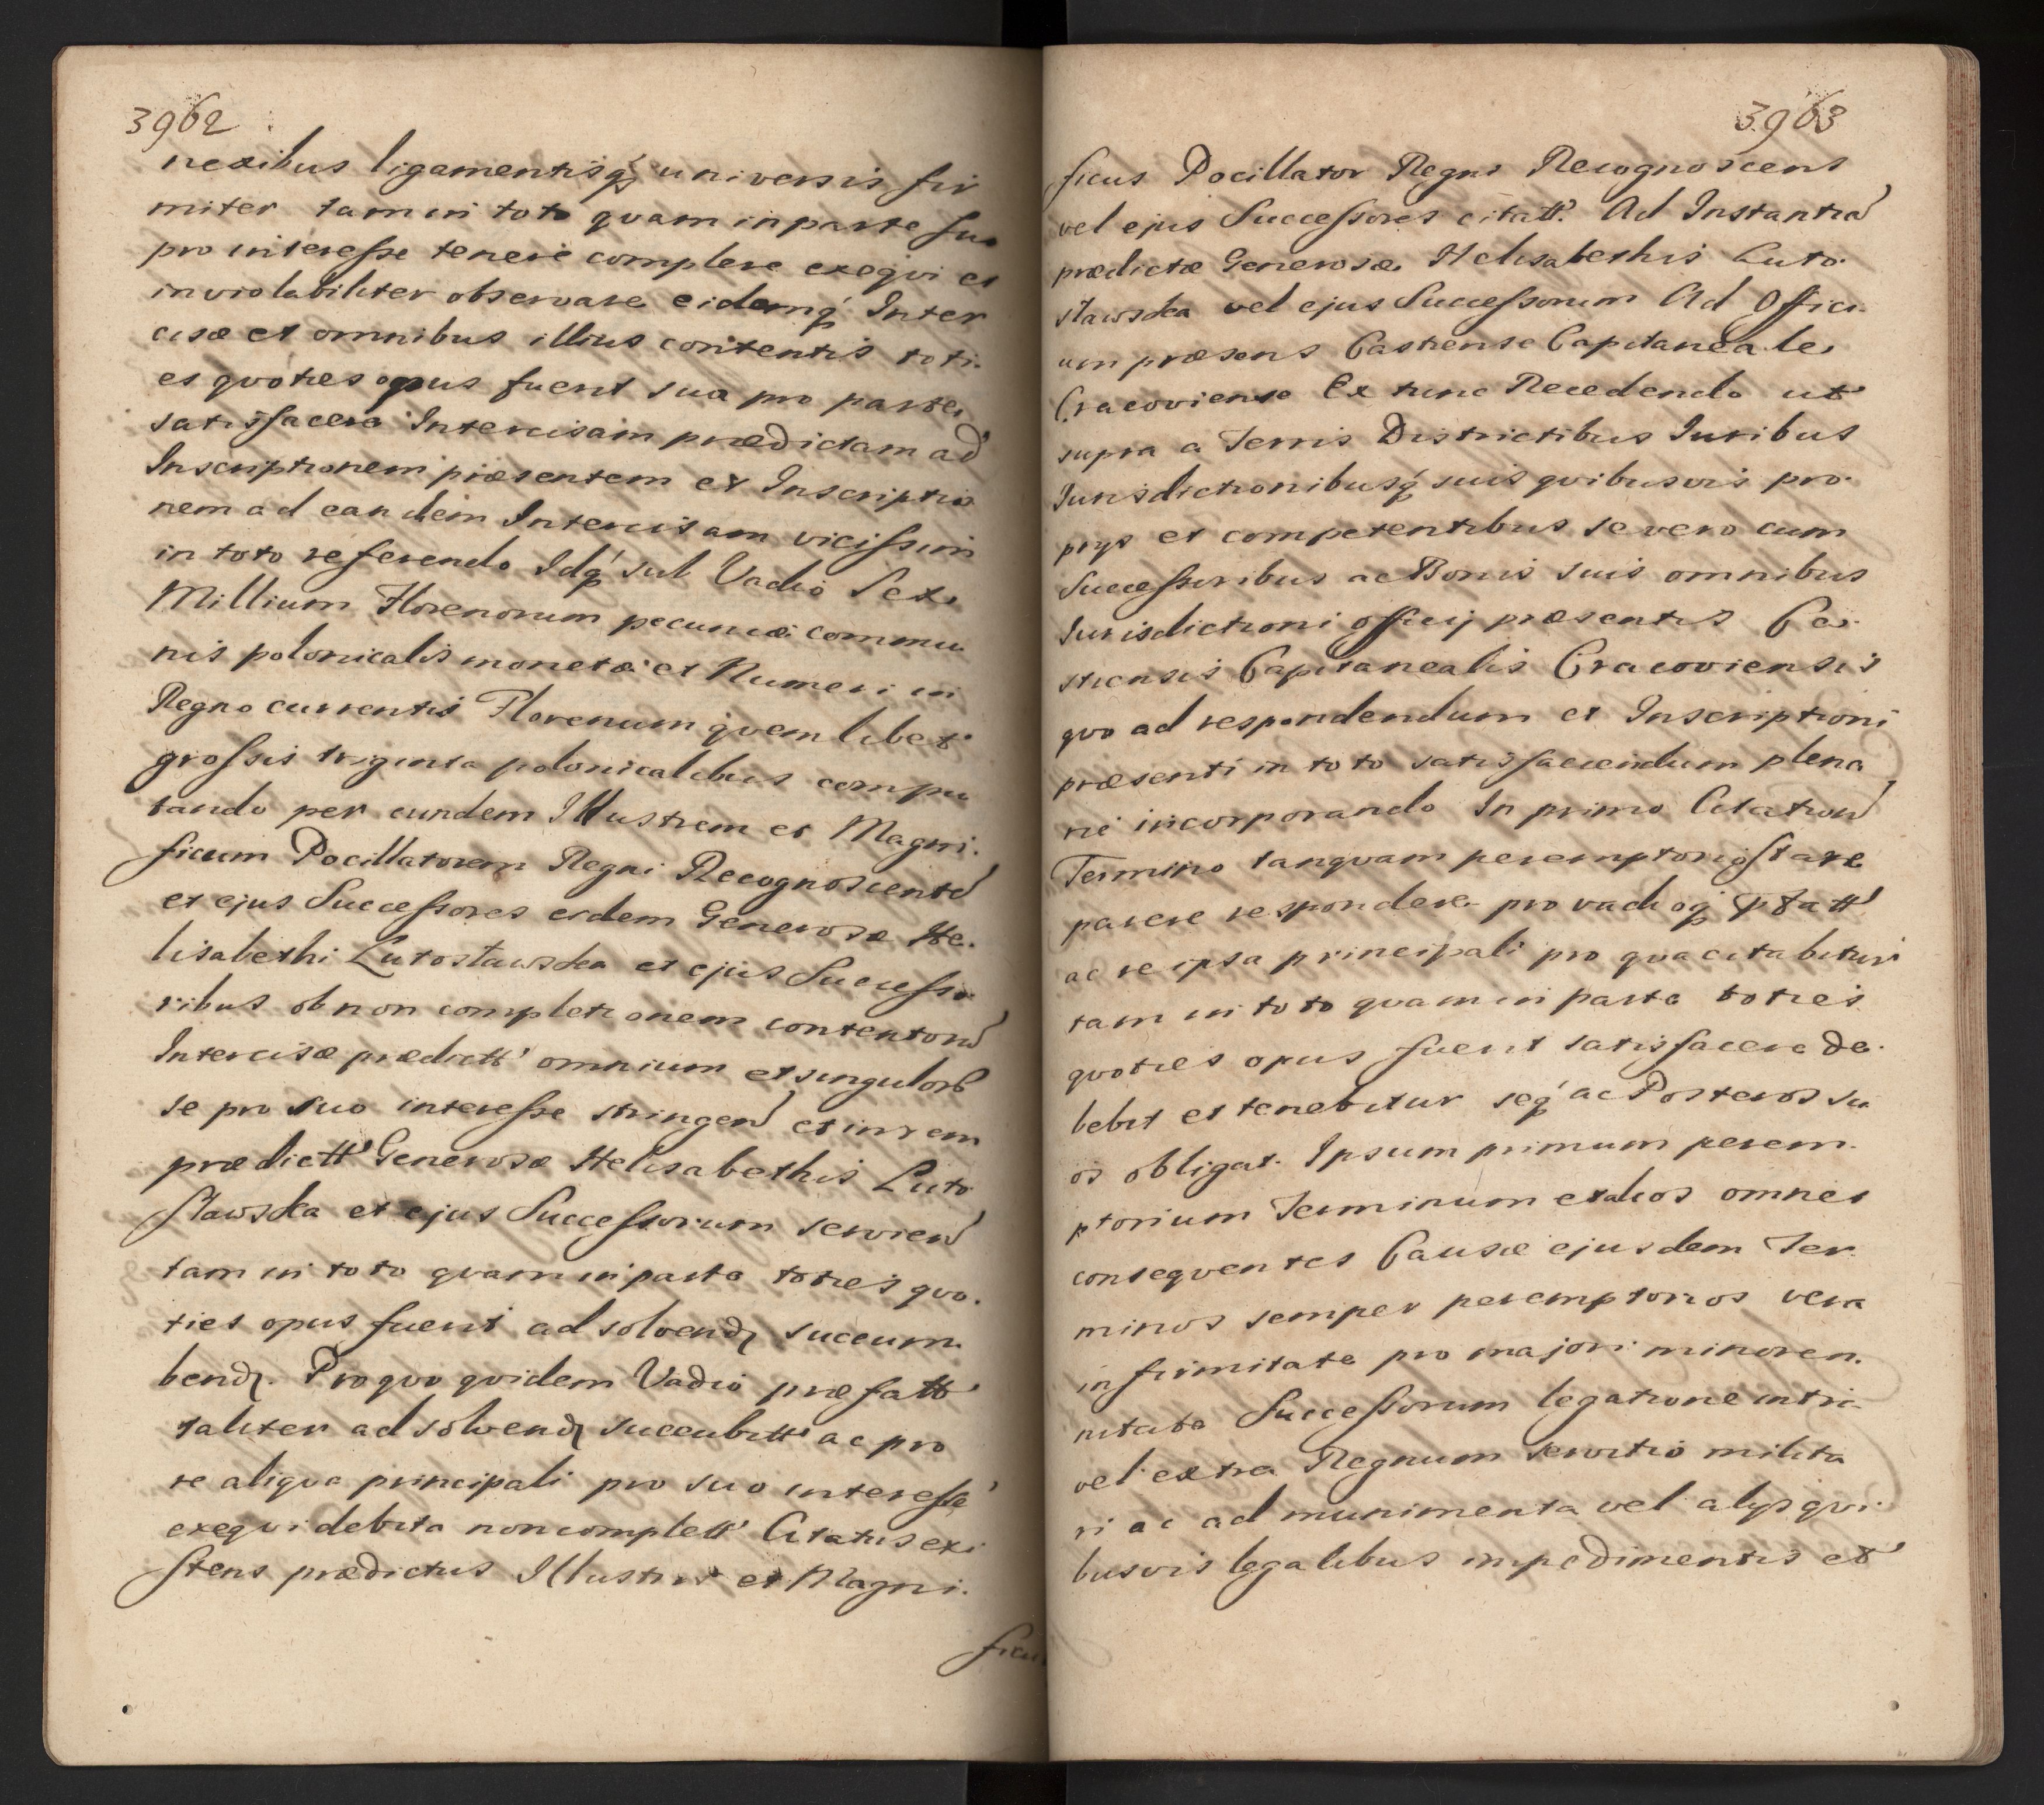 3962
nexibus ligamentisq́ universis fir
miter tam in toto qvam in parte suo
pro interesse tenere complere exeqvi et
inviolabiliter observare eidemq́ Inter
cisæ et omnibus illius contentis toti-
es qvoties opus fuerit sua pro parte
satisfacere Intercisam prædictam ad
Inscriptionem præsentem et Inscriptio
nem ad eandem Intercisam vicissim
in toto referendo Idq́ sub Vadio Sex
Millium Florenorum pecuniæ commu
nis polonicalis monetæ et Numeri in
Regno currentis Florenum qvemlibet
grossis triginta polonicalibus compu
tando per eundem Illustrem et Magni-
ficum Pocillatorem Regni Recognoscente
et ejus Successores eidem Generosæ He-
lisabethi Lutosławska et ejus Successo-
ribus ob non completionem contentor
Intercisæ prædictt' omnium et singulor
se pro suo interesse stringen et in rem
prædictt' Generosæ Helisabethis Luto
sławska et ejus Successorum servien
tam in toto qvam in parte toties qvo-
ties opus fuerit ad solvend succum-
bend. Pro qvo qvidem Vadio præfatt'
taliter ad solvend succubitt' ac pro
re aliqva principali pro suo interesse
exeqvi debita non complett' Citatus exi
stens prædictus Illustris et Magni-
ficus
3963
ficus Pocillator Regni Recognoscens
vel ejus Successores citatt'. Ad Instantia
prædictæ Generosæ Helisabethis Luto-
sławska vel ejus Successorum Ad Offici-
um præsens Castrense Capitaneale
Cracoviense Ex tunc Recedendo ut
supra a Terris Districtibus Iuribus
Iurisdictionibusq́ suis qvibusvis pro-
prys et competentibus se vero cum
Successoribus ac Bonis suis omnibus
Iurisdictioni officij præsentis Ca-
strensis Capitanealis Cracoviensis
qvo ad respondendum et Inscriptioni
præsenti in toto satisfaciendum plena
rie incorporando In primo Citation
Termino tanqvam peremptorio stare
parere respondere pro vadioq́ Pfatt'
ac re ipsa principali pro qva citabitur
tam in toto qvam in parte toties
qvoties opus fuerit satisfacere de-
bebit et tenebitur seq́ ac Posteros su
os obligat. Ipsum primum perem-
ptorium Terminum et alios omnes
conseqventes Causæ ejusdem Ter-
minos semper peremptorios vera
infirmitate pro majori minoren-
nitate Successorum legatione intra
vel extra Regnum servitio milita
ri ac ad munimenta vel alys qvi-
busvis legalibus impedimentis et